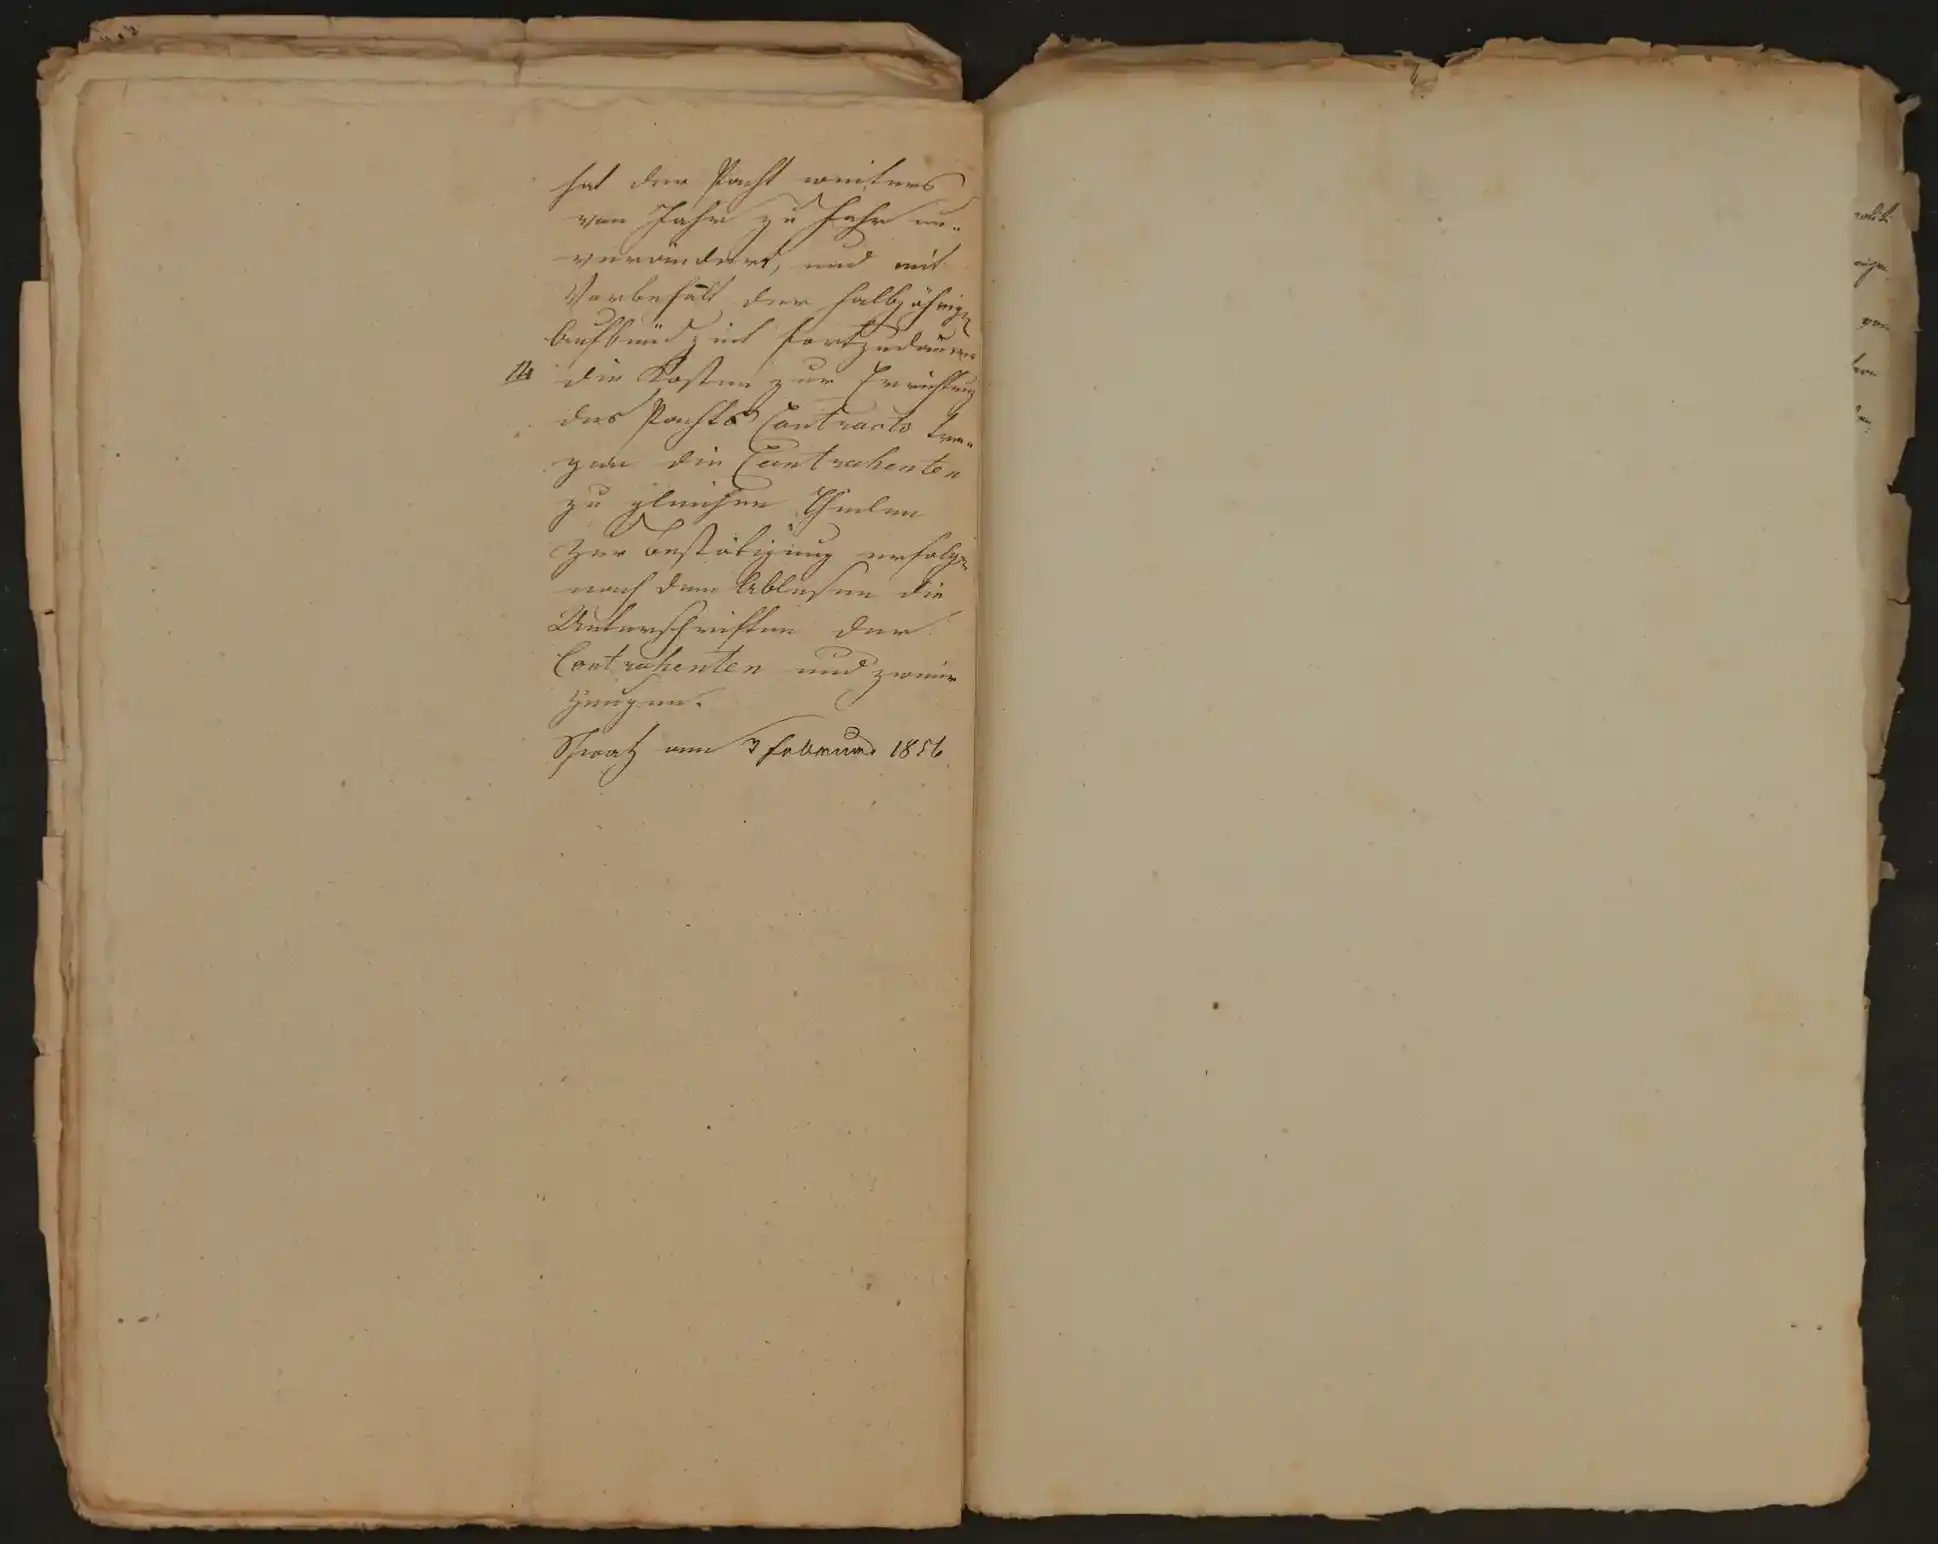 hat der Pacht weiters
von Jahr zu Jahr un„
verändert, und mit
Vorbehalt der halbjährigen
Aufkündzeit fortzudauern
14 die Kosten zur Errichtung
des Pachts Contracts tra„
gen die Contrahenten
zu gleichen Theilen
Zur Bestätigung erfolgen
nach dem Ablesen die
Unterschriften der
Contrahenten und zweier
Zeugen.
Schwatz am 3 Februar 1856